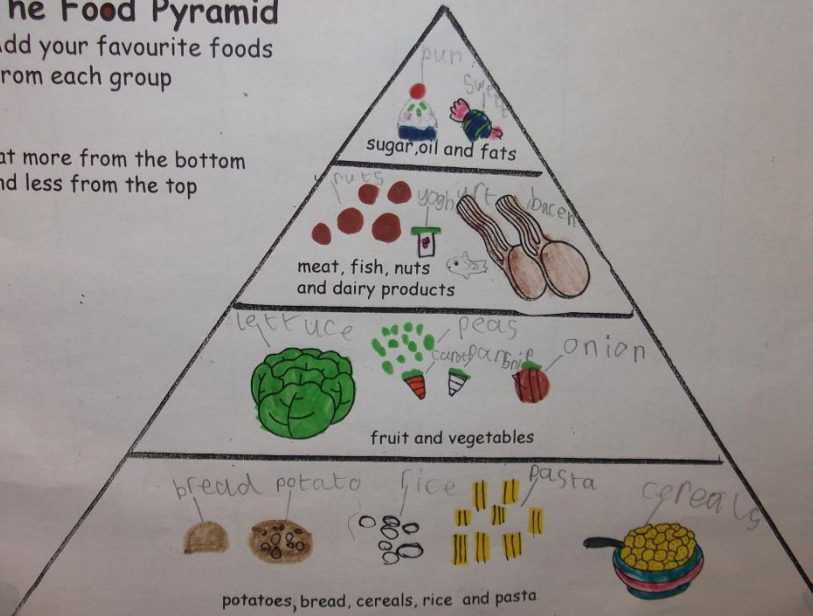 he Food Pyramid
dd your favourite foods
rom each group
at more from the bottom
nd less from the top
bun
sweet
sugar, oil and fats
nuts
yoghurt
bacen
meat, fish, nuts
and dairy products
lettuce
peas
carot
parsnip
onion
fruit and vegetables
bread
potato
rice
pasta
cereals
potatoes, bread, cereals, rice and pasta